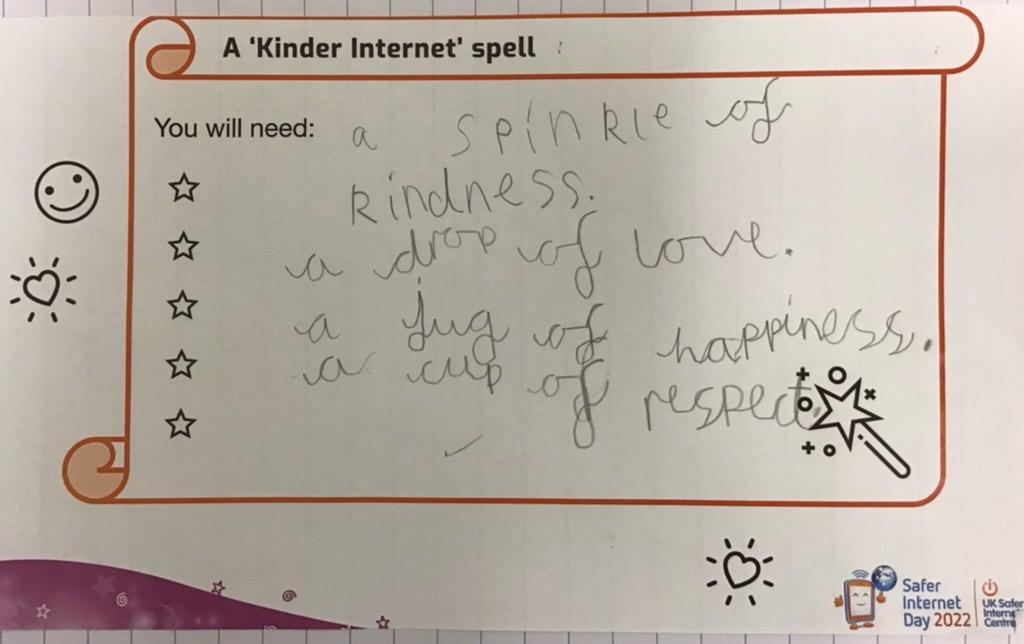 A ‘Kinder Internet’ spell
You will need: a spinkle of
kindness.
a drop of love.
a jug of happiness.
a cup of respect.
Safer
Internet
Day 2022
UK Safer
Internet
Centre